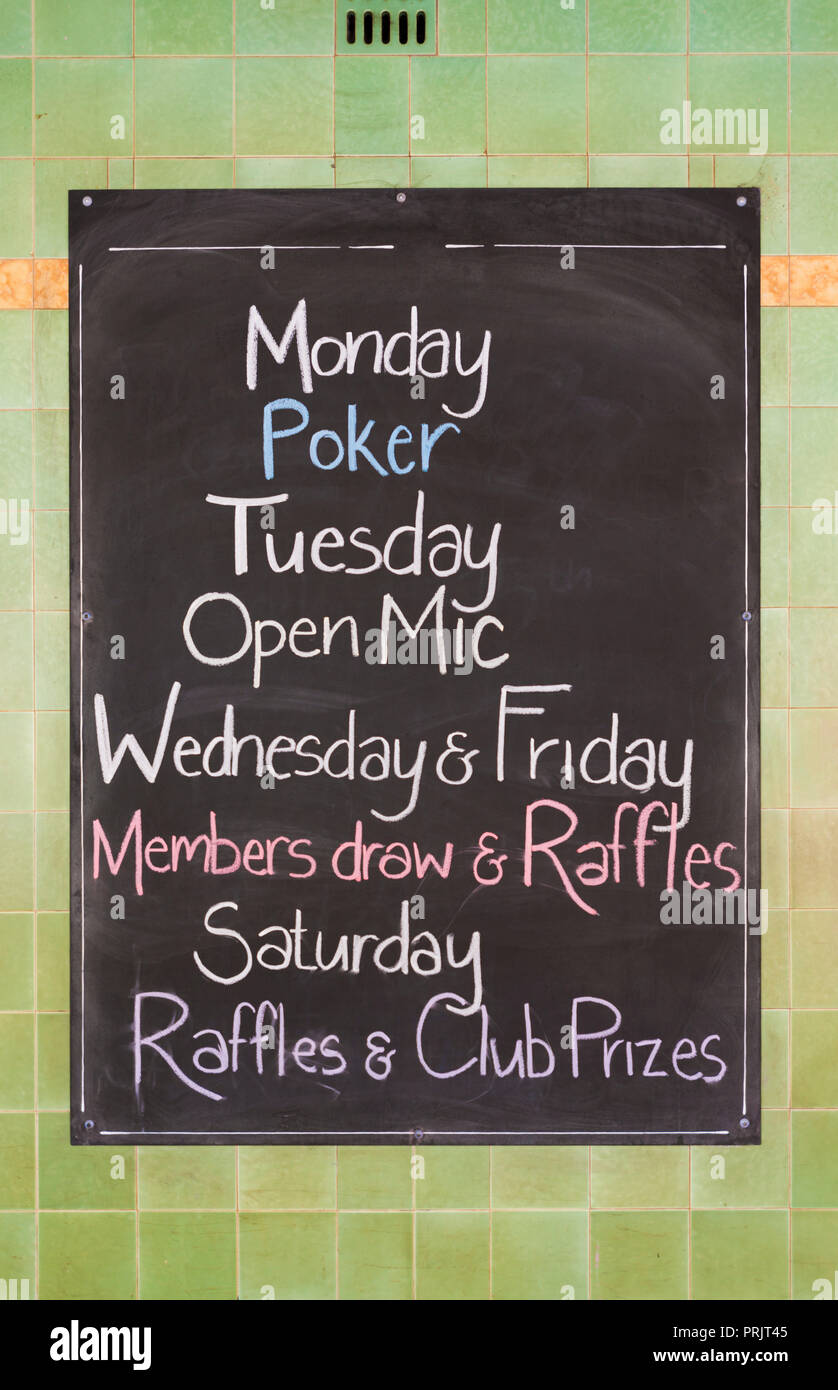 Monday
Poker
Tuesday
Open Mic
Wednesday & Friday
Members draw & Raffles
Saturday
Raffles & Club Prizes
alamy
Image ID: PRJT45
www.alamy.com